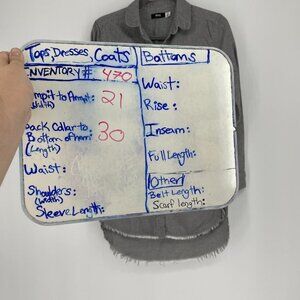 Tops, Dresses, Coats
INVENTORY #: 470
mpit to Armpit: 21
(width)
back Collar to
Bottom of hem: 30
(Length)
Waist:
Shoulders:
(width)
Sleeve Length:
Bottoms
Waist:
Rise:
Inseam:
Full Length:
Other
Belt Length:
Scarf length: